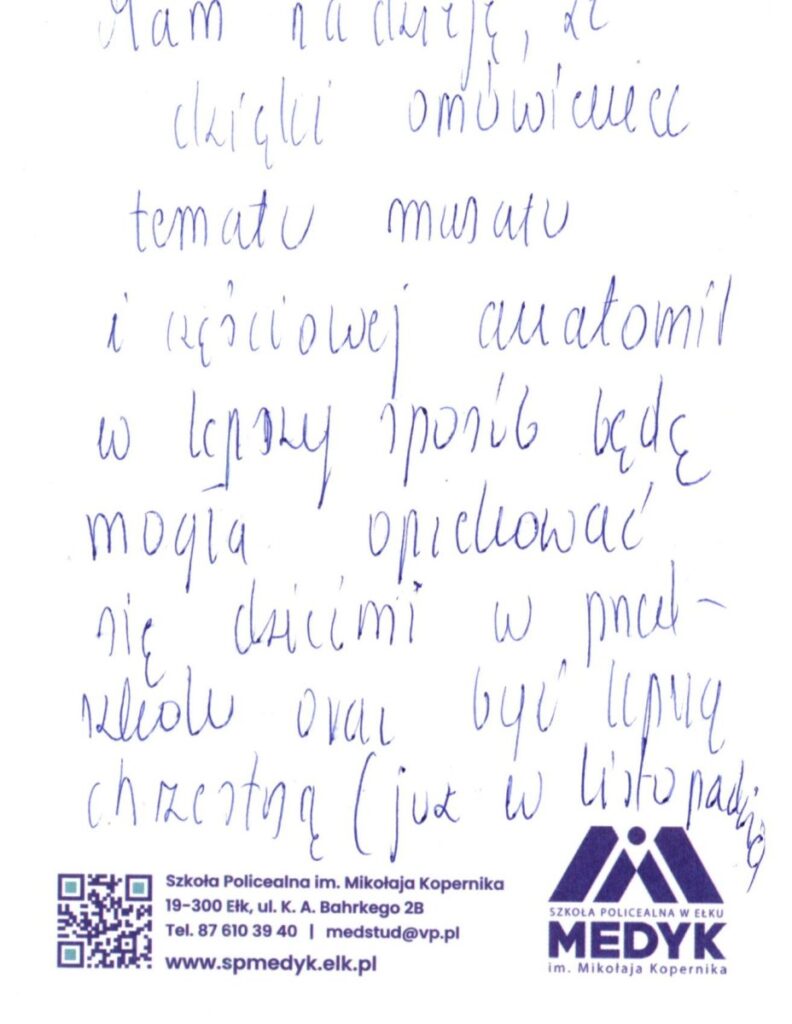 Mam nadzieję, że
dzięki omówieniu
tematu masażu
i częściowej anatomii
w lepszy sposób będę
mogła opiekować
się dziećmi w przed-
szkolu oraz być lepszą
chrzestną (już w listopadzie)
Szkoła Policealna im. Mikołaja Kopernika
19-300 Ełk, ul. K. A. Bahrkego 2B
Tel. 87 610 39 40 | medstud@vp.pl
www.spmedyk.elk.pl
SZKOŁA POLICEALNA W EŁKU
MEDYK
im. Mikołaja Kopernika